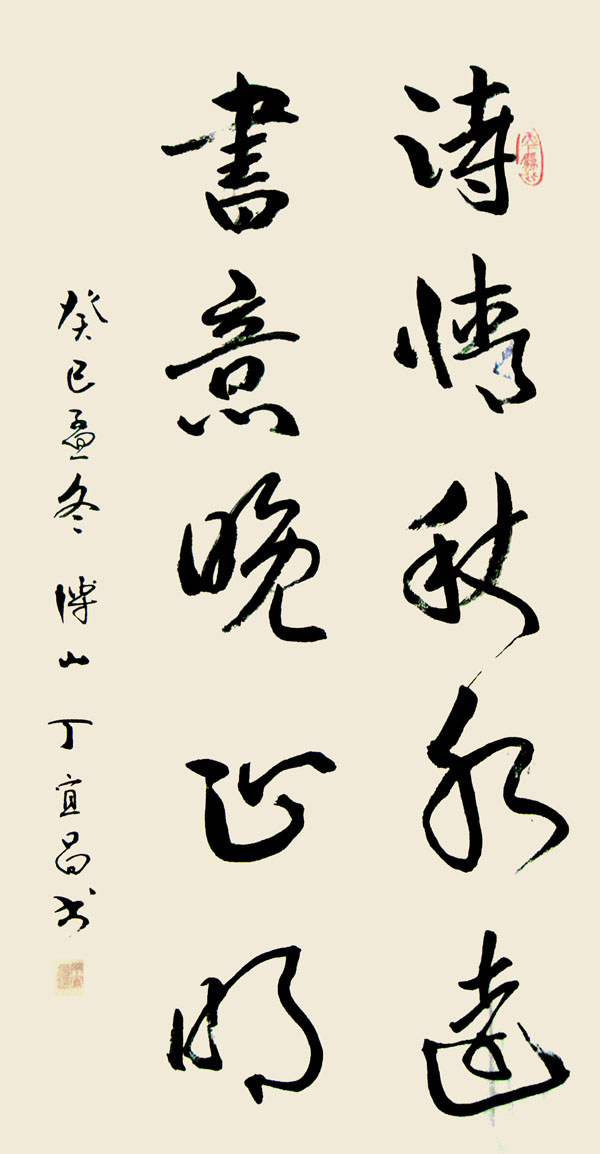 诗情秋水远
書意晚山明
癸巳孟冬 博山 丁宜昌书